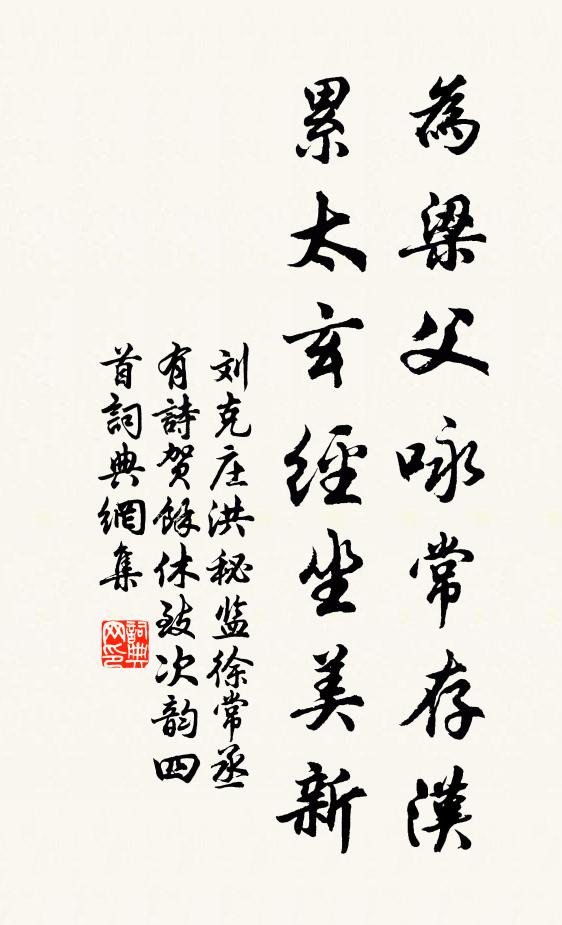 為梁父咏常存漢
累太玄經坐美新
刘克庄洪秘监徐常丞
有詩贺餘休致次韵四
首詞典網集
詞典网印